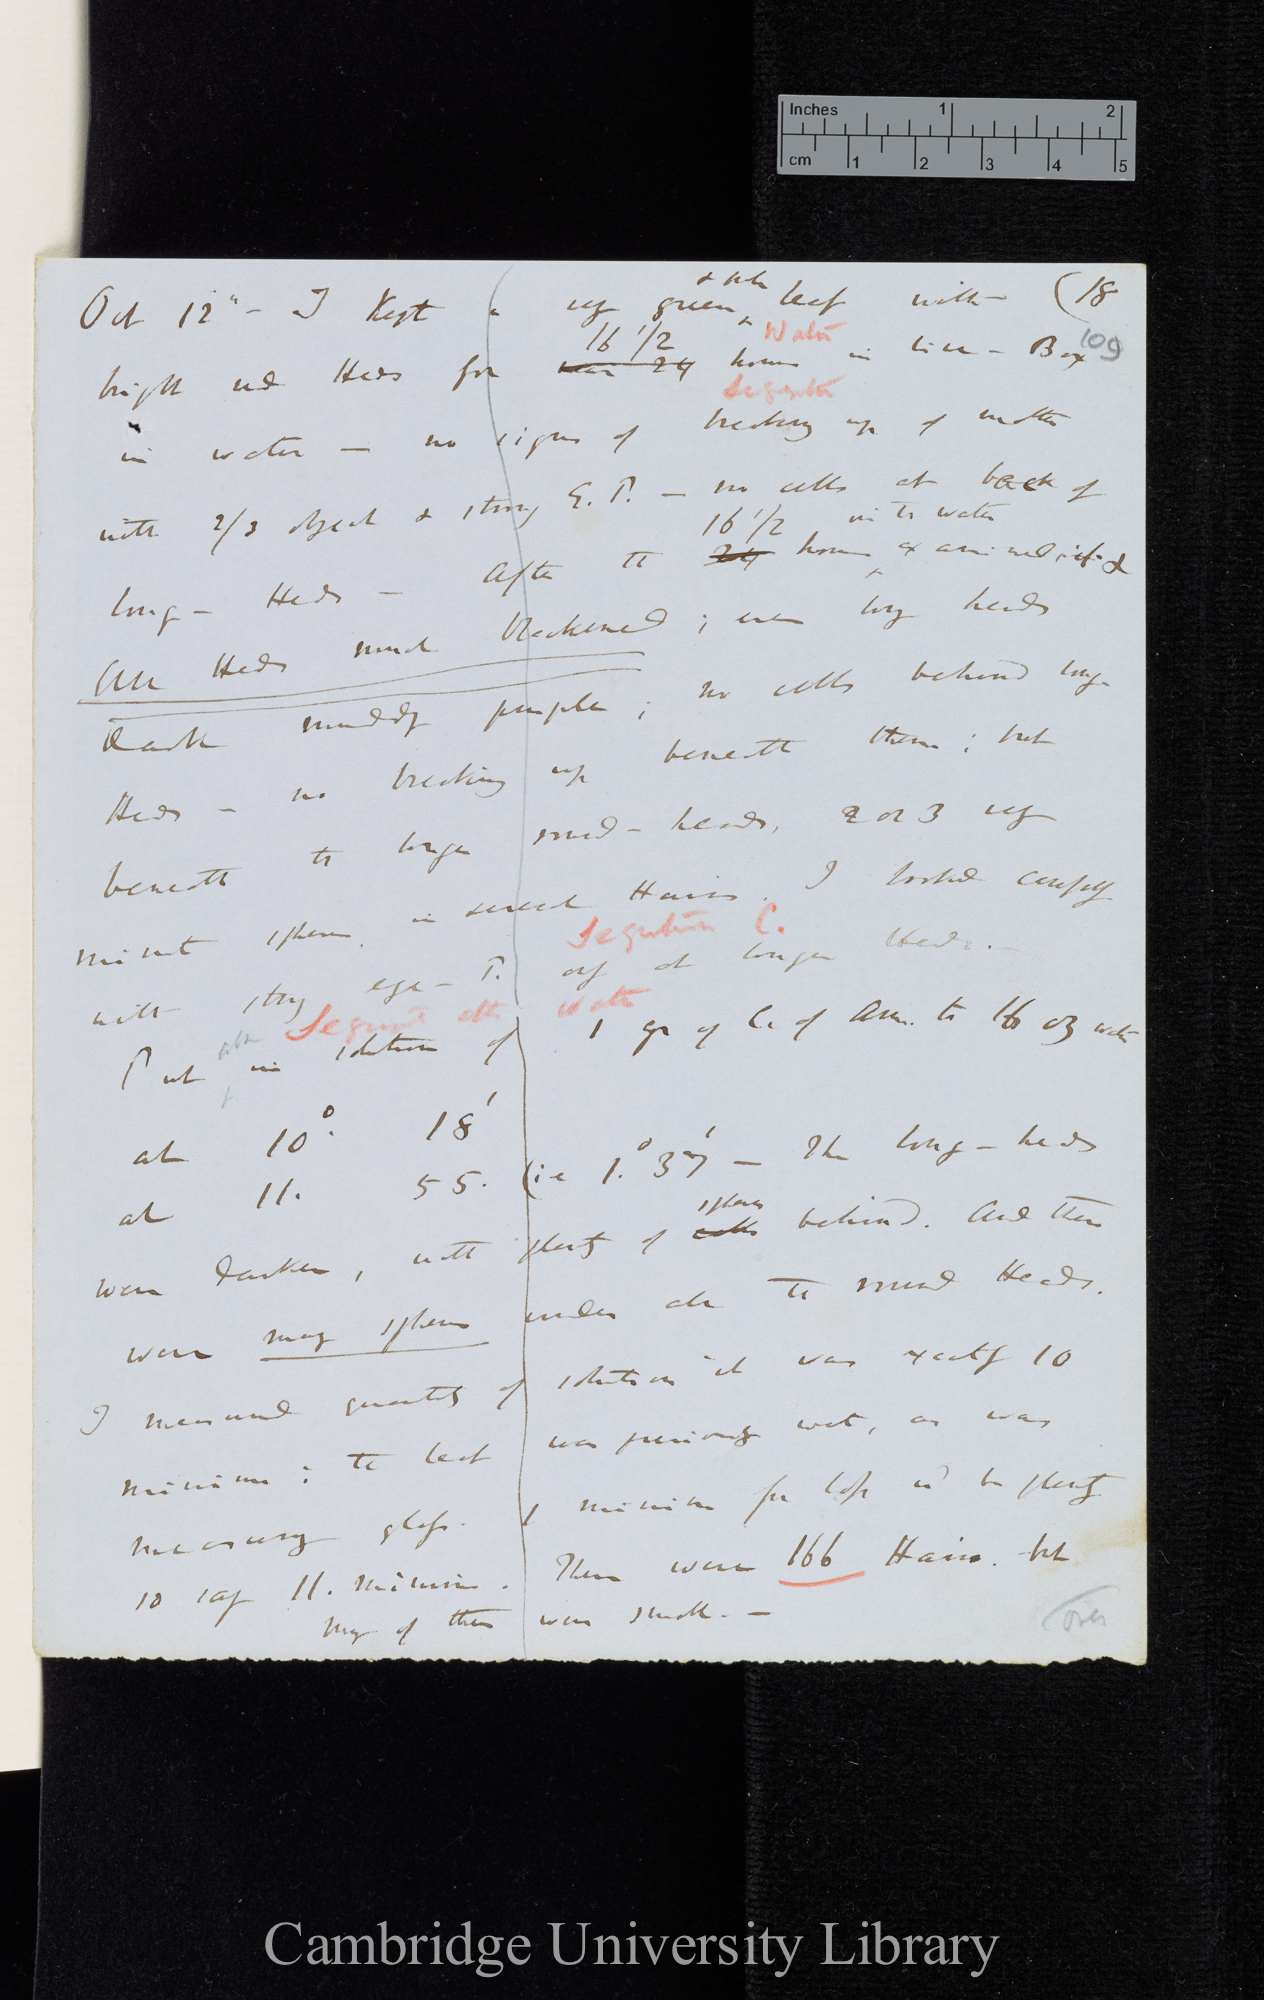 Inches 1 2
cm 1 2 3 4 5
(18
109
Oct 12" - I kept a very green & pale leaf with
bright red Heads for 16 1/2 hours in tin - Box
Water
in water - no signs of breaking up of matter
with 2/3 object & strong E. P. - no cells at back of
long - Heads - After the 16 1/2 24 hours in the water examined it &
All Heads much blackened; even long heads
dark muddy purple; no cells behind long
Heads - no breaking up beneath them; but
beneath the longer round - heads, 2 or 3 very
minute spheres in several Hairs. I looked carefully
Segregation C.
with strong eye - P. only at longer Heads. -
after Water
Put in solution of 1 gr of C. of Am. to 16 oz water
at 10° 18'
at 11. 55. (ie 1.° 37') - The long - heads
were darker, with plenty of spheres cells behind. And there
were many spheres under all the round Heads.
I measured quantity of solution it was exactly 10
minims: the leaf was previously wet, as was
measuring glass. 1 minim for loss wd be plenty
so say 11. minims. There were 166 Hairs. but
many of them were small. -
over
Cambridge University Library